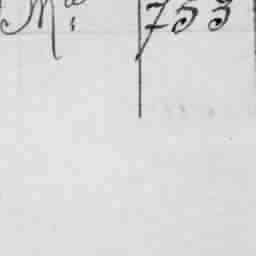 Ma 753